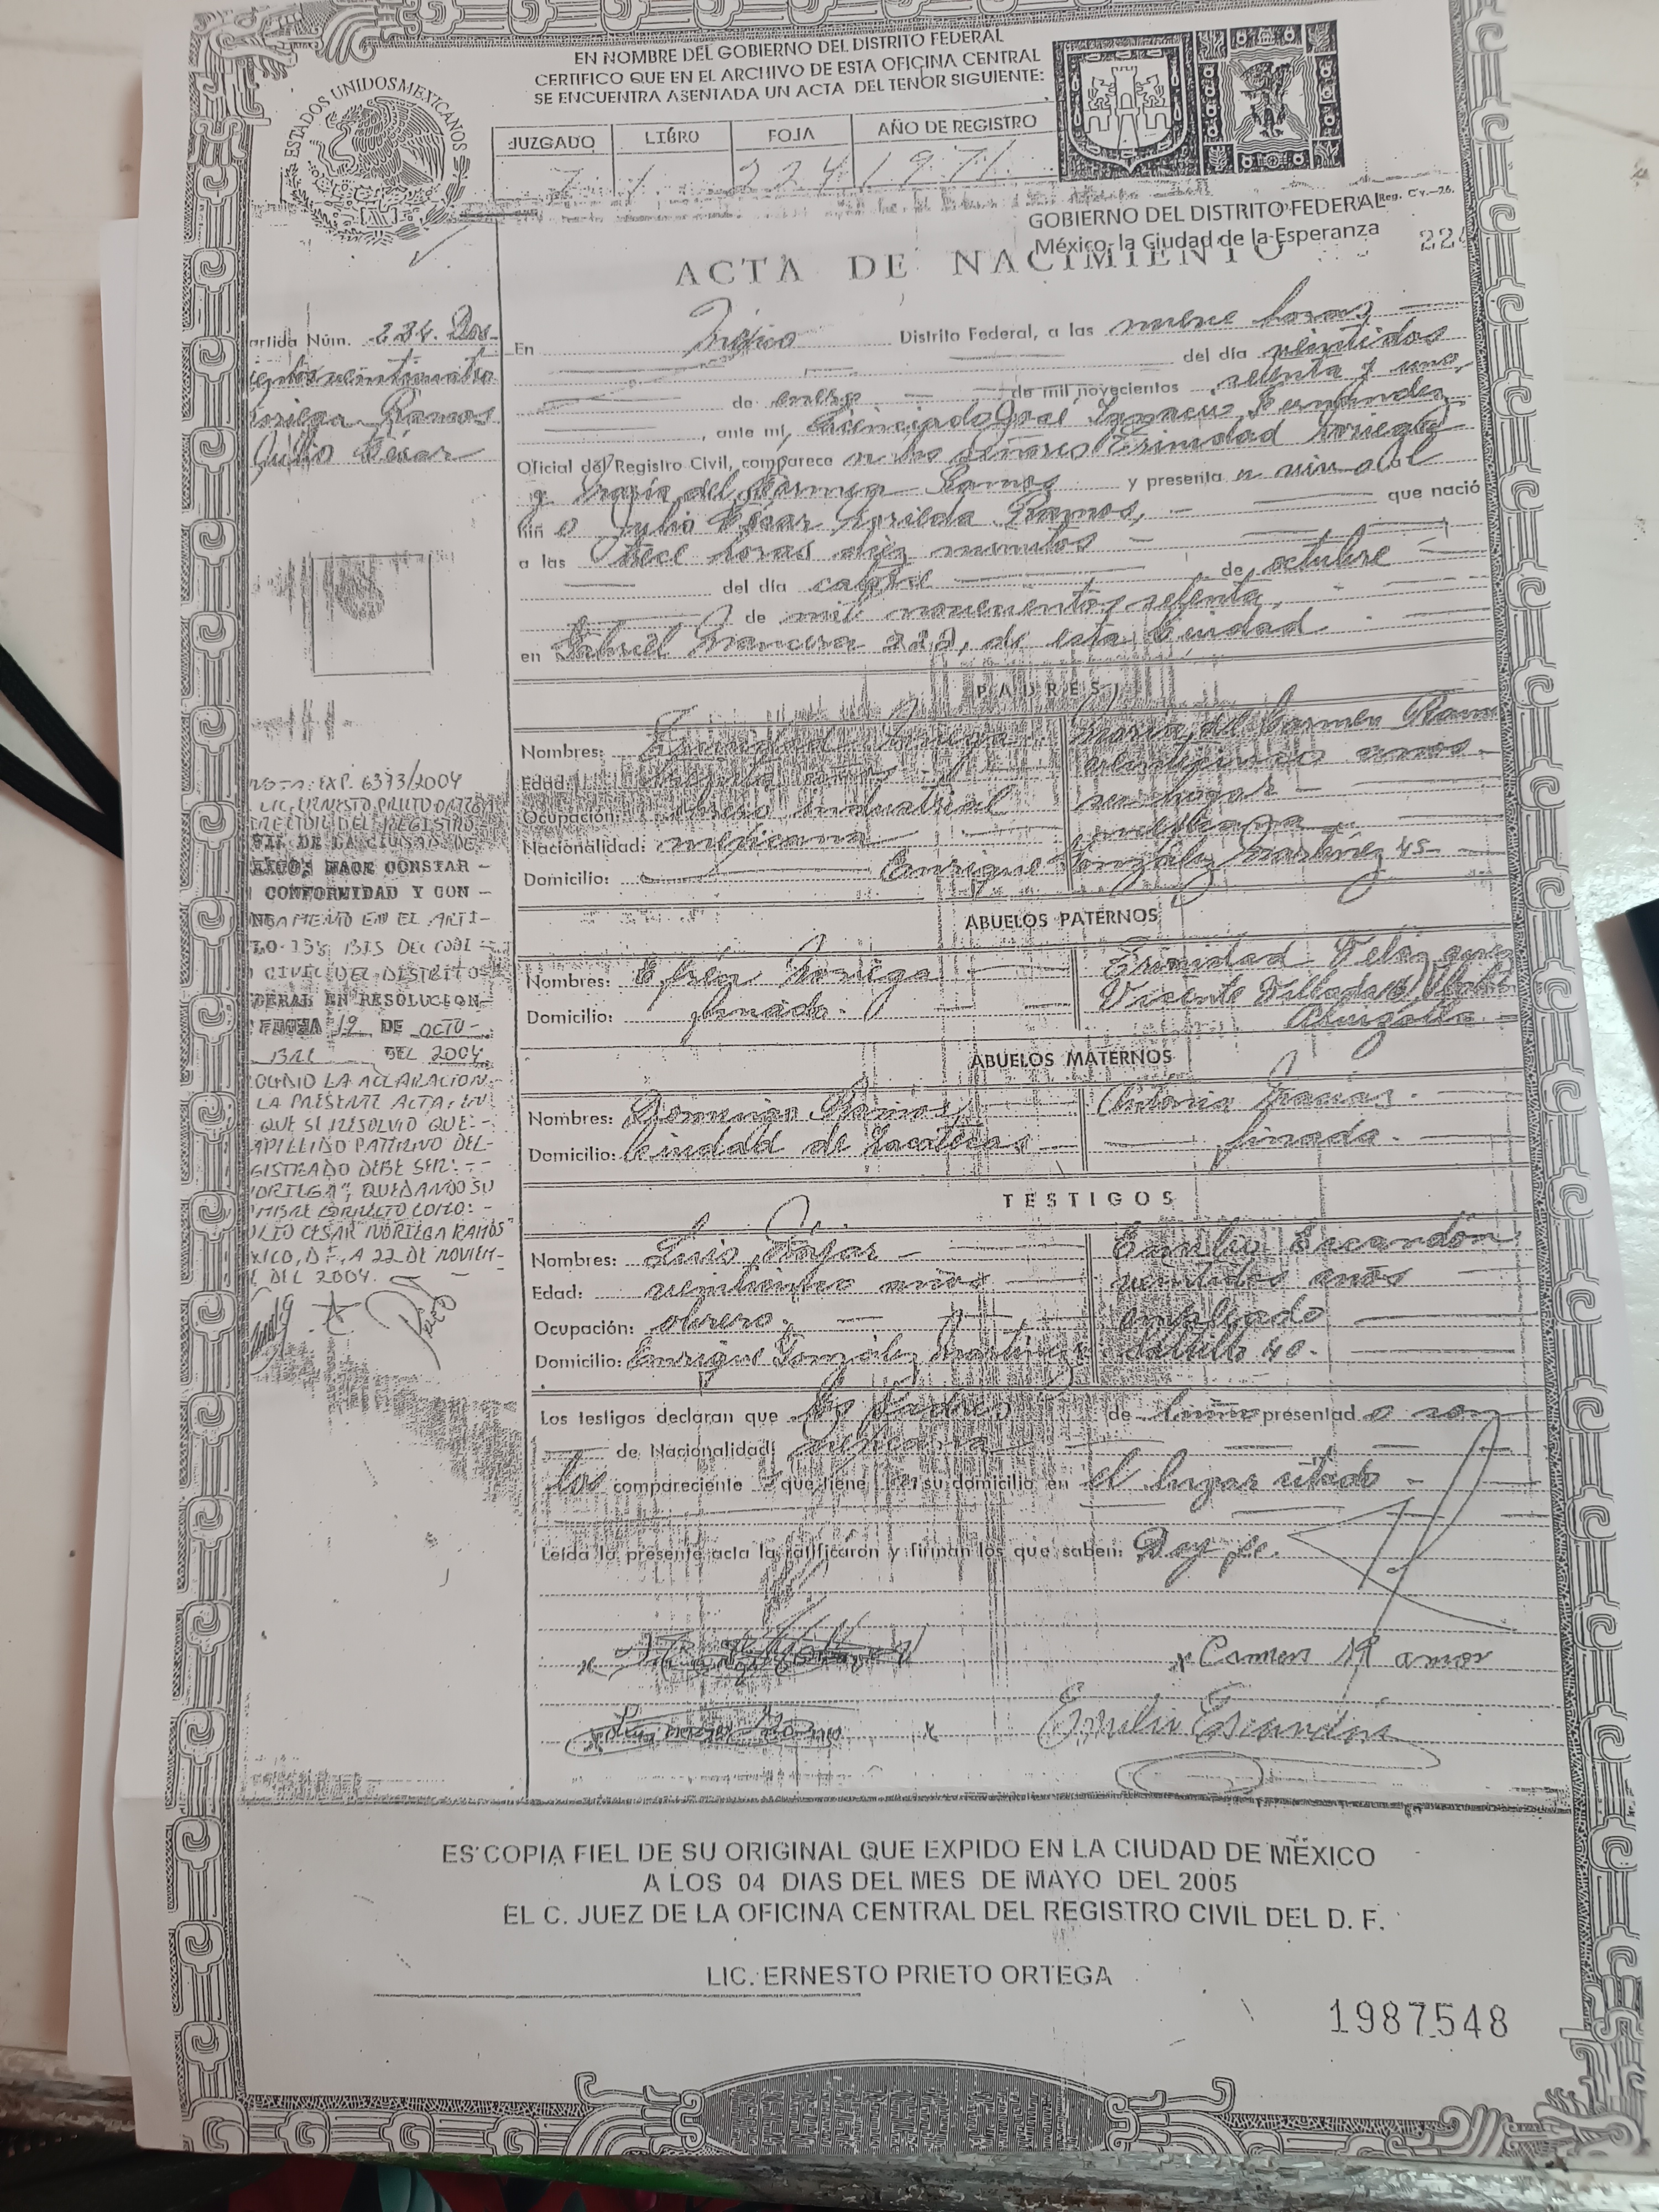 EN NOMBRE DEL GOBIERNO DEL DISTRITO FEDERAL
CERTIFICO QUE EN EL ARCHIVO DE ESTA OFICINA CENTRAL
SE ENCUENTRA ASENTADA UN ACTA DEL TENOR SIGUIENTE:
ESTADOS UNIDOS MEXICANOS
JUZGADO LIBRO FOJA AÑO DE REGISTRO
7 1 224 1971
Reg. Cv.-26.
GOBIERNO DEL DISTRITO FEDERAL
México, la Ciudad de la Esperanza
22
ACTA DE NACIMIENTO
artida Núm. 224. Dos-
cientos veinticuatro
Noriega Ramos
Julio César
En México Distrito Federal, a las nueve horas
del día veintidos
de enero de mil novecientos setenta y uno,
, ante mí, Licenciado José Ignacio Fernández
Oficial del Registro Civil, comparece n los señores Trinidad Noriega
y María del Carmen Ramos y presenta n vivo al
niñ o Julio César Ramos, que nació
a las trece horas diez minutos
del día catorce de octubre
de mil novecientos setenta,
en Gabriel Mancera 222, de esta Ciudad
PADRES
Nombres: Trinidad Noriega María del Carmen Ram
Edad: treinta años años
Ocupación: obrero industrial su hogar
Nacionalidad: mexicana mexicana
Domicilio: Enrique González Martínez 45
ABUELOS PATERNOS
Nombres: Efrén Noriega Trinidad Velázquez
Domicilio: finado. Vicente Villada
ABUELOS MATERNOS
Nombres: Domingo Ramos Antonia Macías.
Domicilio: Ciudad de Zacatecas finada.
TESTIGOS
Nombres: Luis Emilio Escandón
Edad: años veintidos años
Ocupación: obrero. empleado
Domicilio: Enrique González Martínez Saltillo 40.
Los testigos declaran que los padres de l niño presentad o son
de Nacionalidad mexicana
los compareciente s que tiene n su domicilio en el lugar citado
Leída la presente acta la ratificaron y firman los que saben: Doy fe.
x Carmen R amos
x Emilio Escandón
NOTA: EXP. 6373/2004
LIC. ERNESTO PRIETO ORTEGA
RECTOR DEL REGISTRO
VIL DE LA CIUDAD DE
XICO, HACE CONSTAR -
CONFORMIDAD Y CON -
NDAMENTO EN EL ARTI-
LO 138 BIS DEL CODI -
CIVIL DEL DISTRITO
DERAL EN RESOLUCION
FECHA 19 DE OCTU-
BRE DEL 2004
LA ACLARACION
LA PRESENTE ACTA, EN
QUE SE RESOLVIO QUE: -
APELLIDO PATERNO DEL -
GISTRADO DEBE SER: - -
"ORIEGA", QUEDANDO SU
MBRE CORRECTO COMO: -
LIO CESAR NORIEGA RAMOS"
XICO, D.F., A 22 DE NOVIEM-
E DEL 2004.
ES COPIA FIEL DE SU ORIGINAL QUE EXPIDO EN LA CIUDAD DE MÉXICO
A LOS 04 DIAS DEL MES DE MAYO DEL 2005
EL C. JUEZ DE LA OFICINA CENTRAL DEL REGISTRO CIVIL DEL D. F.
LIC. ERNESTO PRIETO ORTEGA
1987548